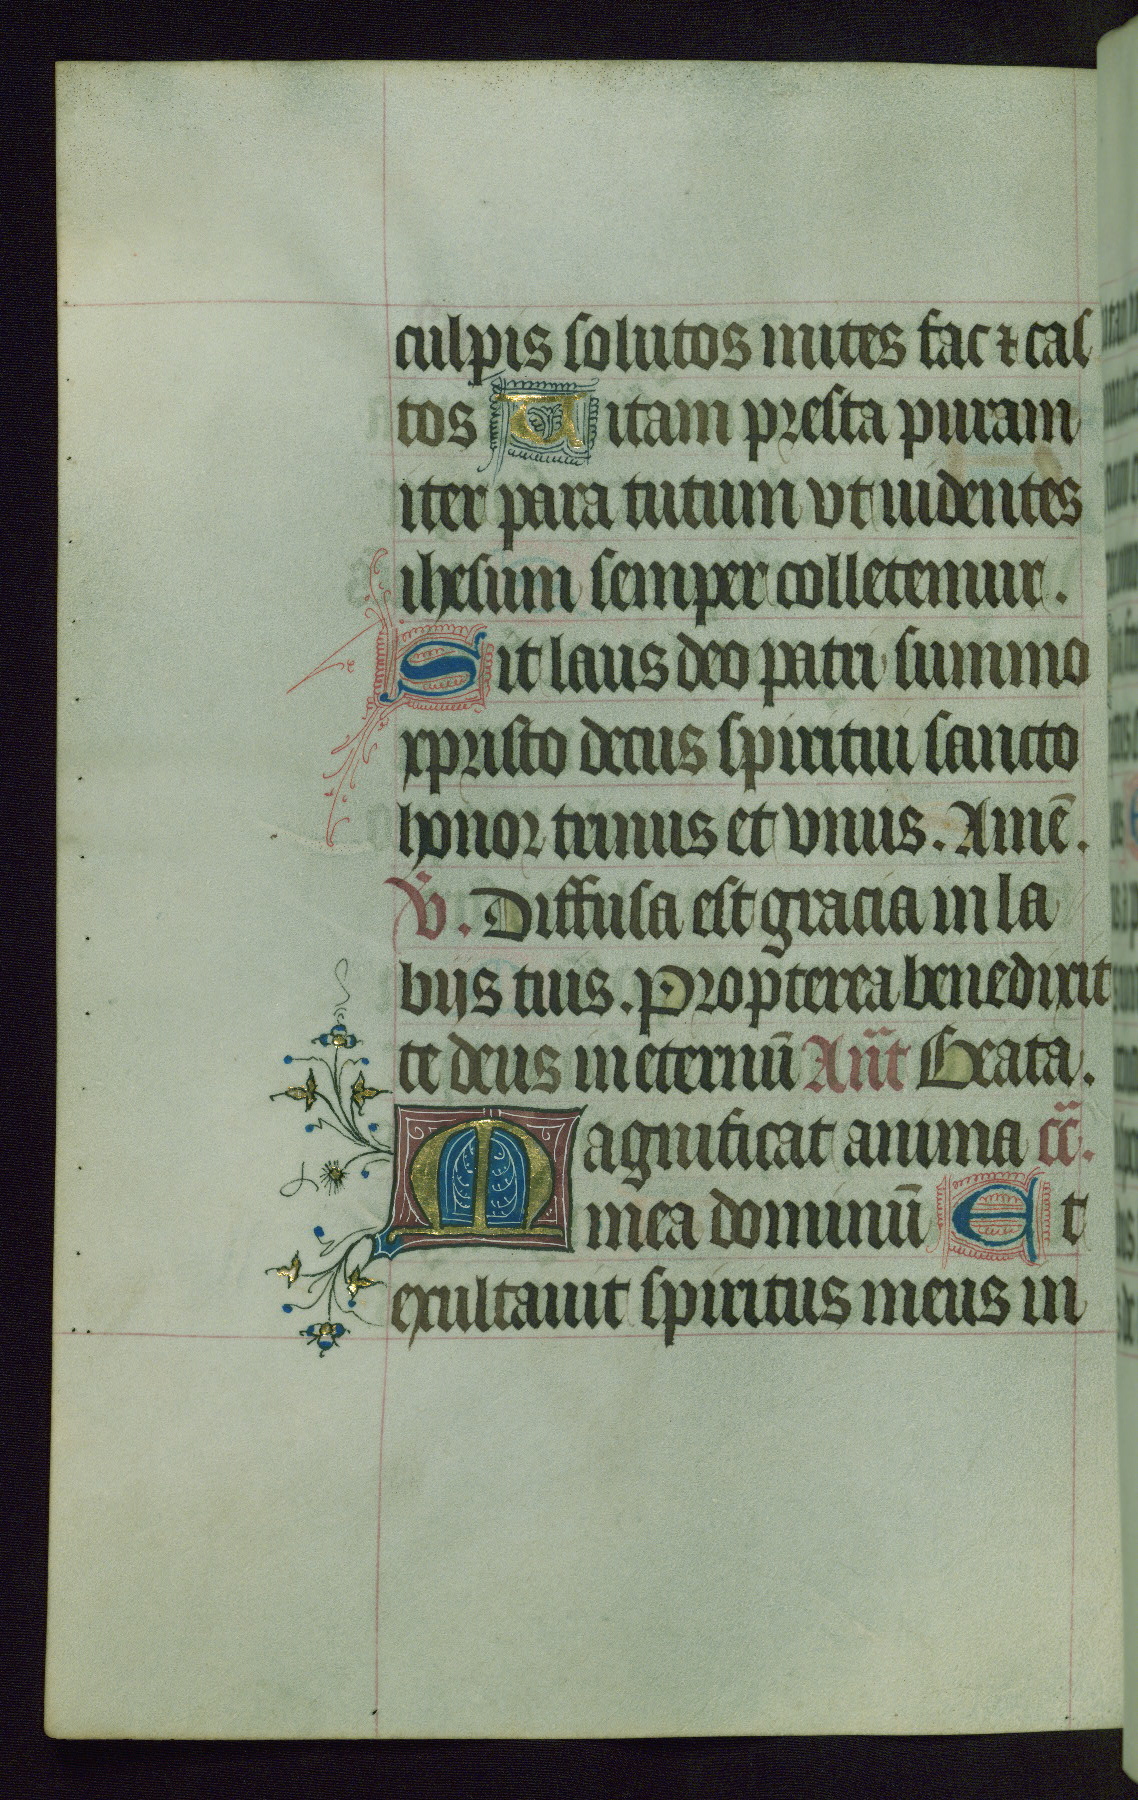 culpis solutos mites fac ⁊ cas
tos Uitam presta puram
iter para tutum vt uidentes
ihesum semper colletemur.
Sit laus deo patri summo
xpristo decus spiritui sancto
honor trinus et vnus. Amē.
V̄. Diffusa est gracia in la
bijs tuis. Propterea benedixit
te deus in eternū Ant̄ Beata.
Magnificat anima c̄c̄.
mea dominū Et
exultauit spiritus meus in